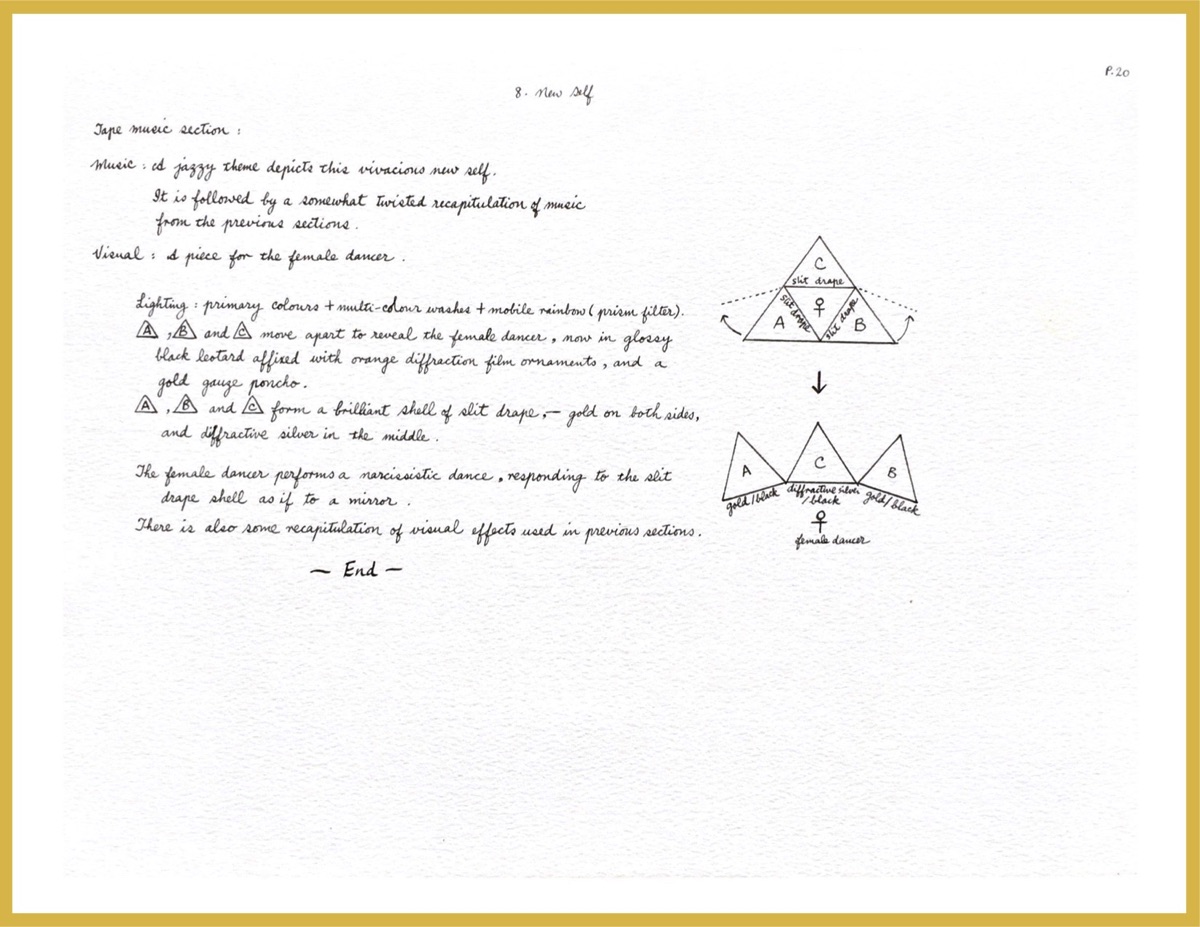 P.20
8. New Self
Tape music section :
Music : A jazzy theme depicts this vivacious new self.
It is followed by a somewhat twisted recapitulation of music
from the previous sections.
Visual : A piece for the female dancer.
Lighting : primary colours + multi-colour washes + mobile rainbow (prism filter).
A, B and C move apart to reveal the female dancer, now in glossy
black leotard affixed with orange diffraction film ornaments, and a
gold gauze poncho.
A, B and C form a brilliant shell of slit drape, — gold on both sides,
and diffractive silver in the middle.
The female dancer performs a narcissistic dance, responding to the slit
drape shell as if to a mirror.
There is also some recapitulation of visual effects used in previous sections.
— End —
C
slit drape
slit drape
♀
slit drape
A
B
A
C
B
gold/black
diffractive silver
/black
gold/black
♀
female dancer